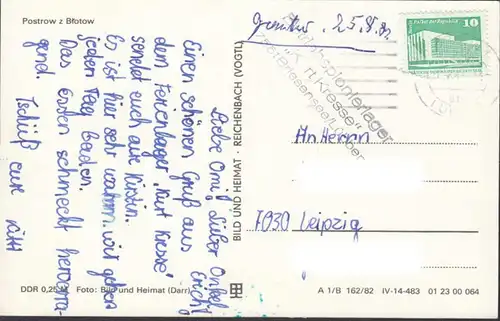 Postrow z Błotow
Liebe Omi, lieber Onkel
Einen schönen Gruß aus
dem Ferienlager "Kurt Kresse"
sendet euch eure Kirstin.
Es ist hier sehr warm. wir gehen
jeden Tag baden.
Das Essen schmeckt hervorra-
gend. Tschüß eure
DDR 0,25 M Foto: Bild und Heimat (Darr)
BILD UND HEIMAT · REICHENBACH (VOGTL)
25.8.82
10
Pionierlager
"Kurt Kresse"
An Herrn
7030 Leipzig
A 1/B 162/82 IV-14-483 01 23 00 064